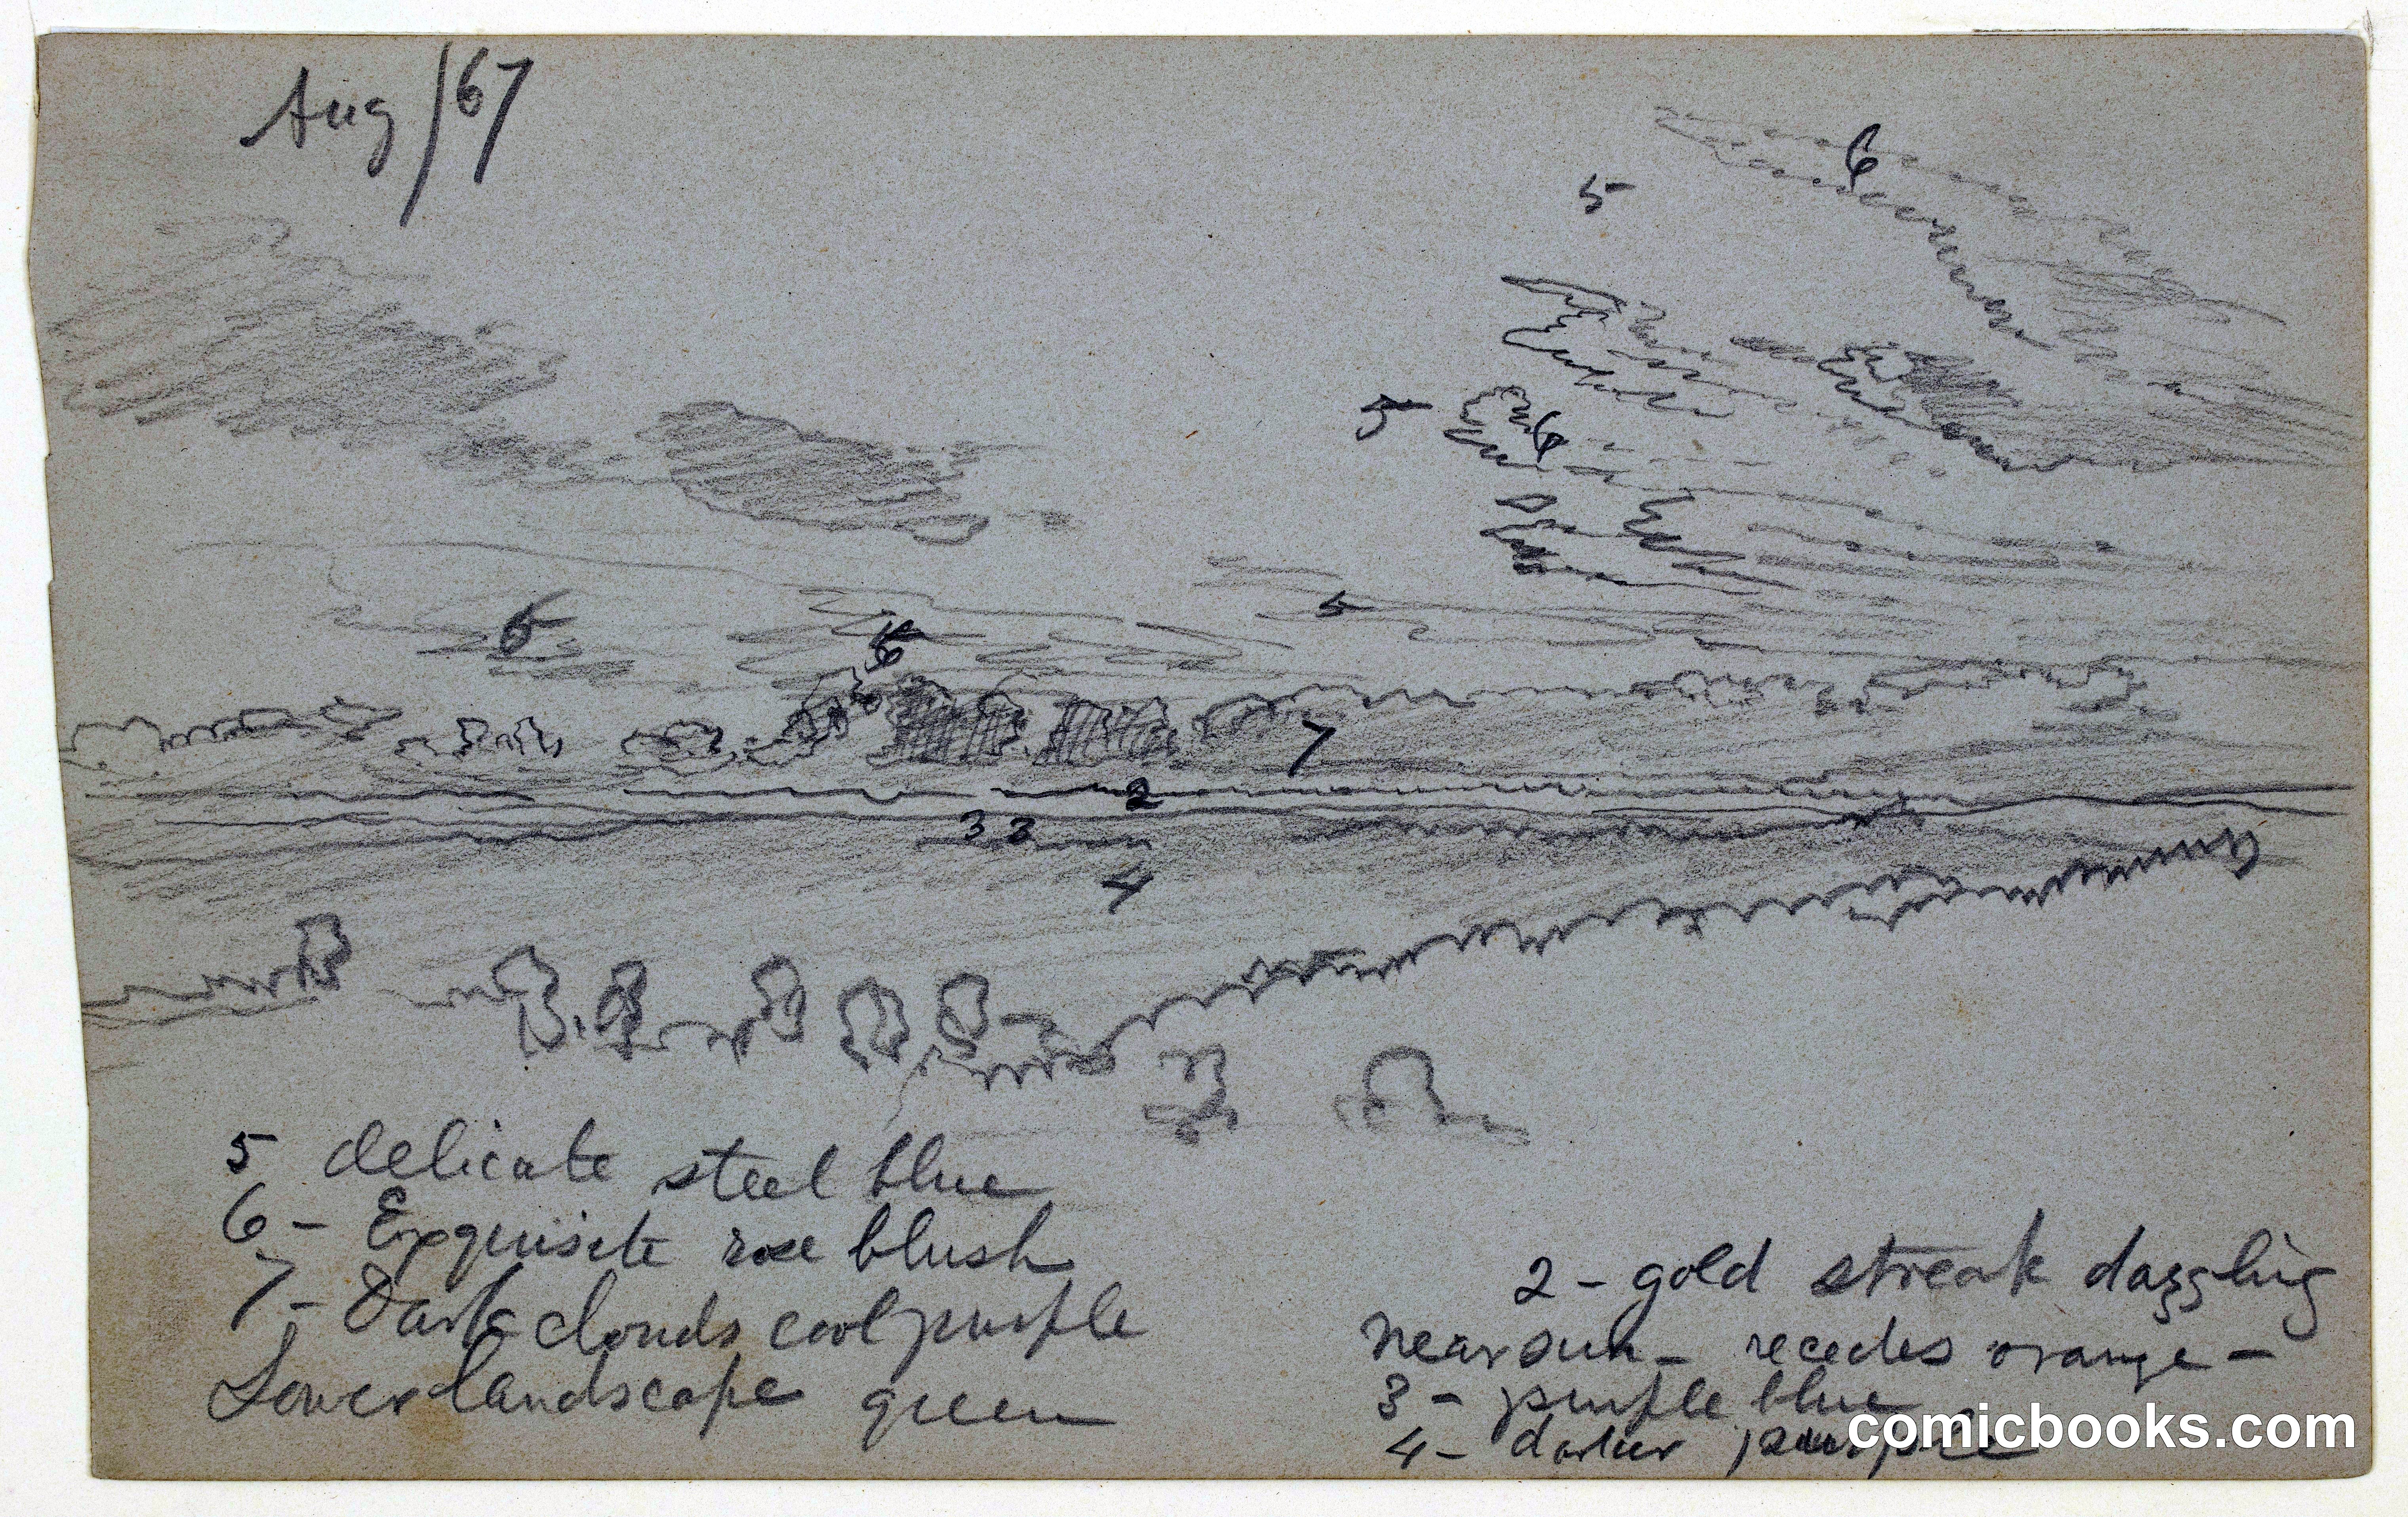 Aug/67
6
5
5 6
5
5
6
6
7
2
3 3
4
5 delicate steel blue
6 - Exquisite rose blush
7 - Dark clouds cool purple
Lower landscape green
2 - gold streak dazzling
near sun - recedes orange -
3 - purple blue
4 - darker purple
comicbooks.com